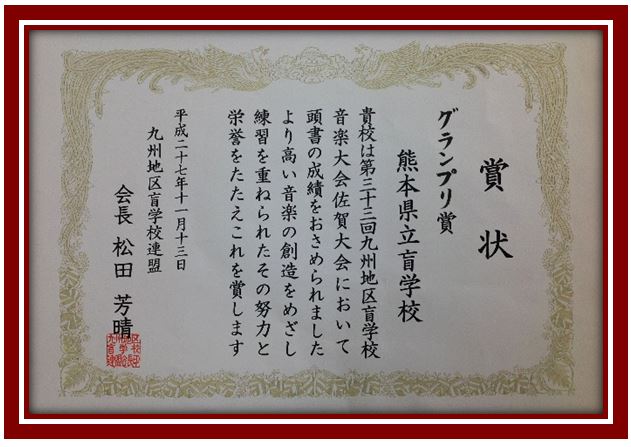 賞状
グランプリ賞
熊本県立盲学校
貴校は第三十三回九州地区盲学校
音楽大会佐賀大会において
頭書の成績をおさめられました
より高い音楽の創造をめざし
練習を重ねられたその努力と
栄誉をたたえこれを賞します
平成二十七年十一月十三日
九州地区盲学校連盟
会長 松田 芳晴